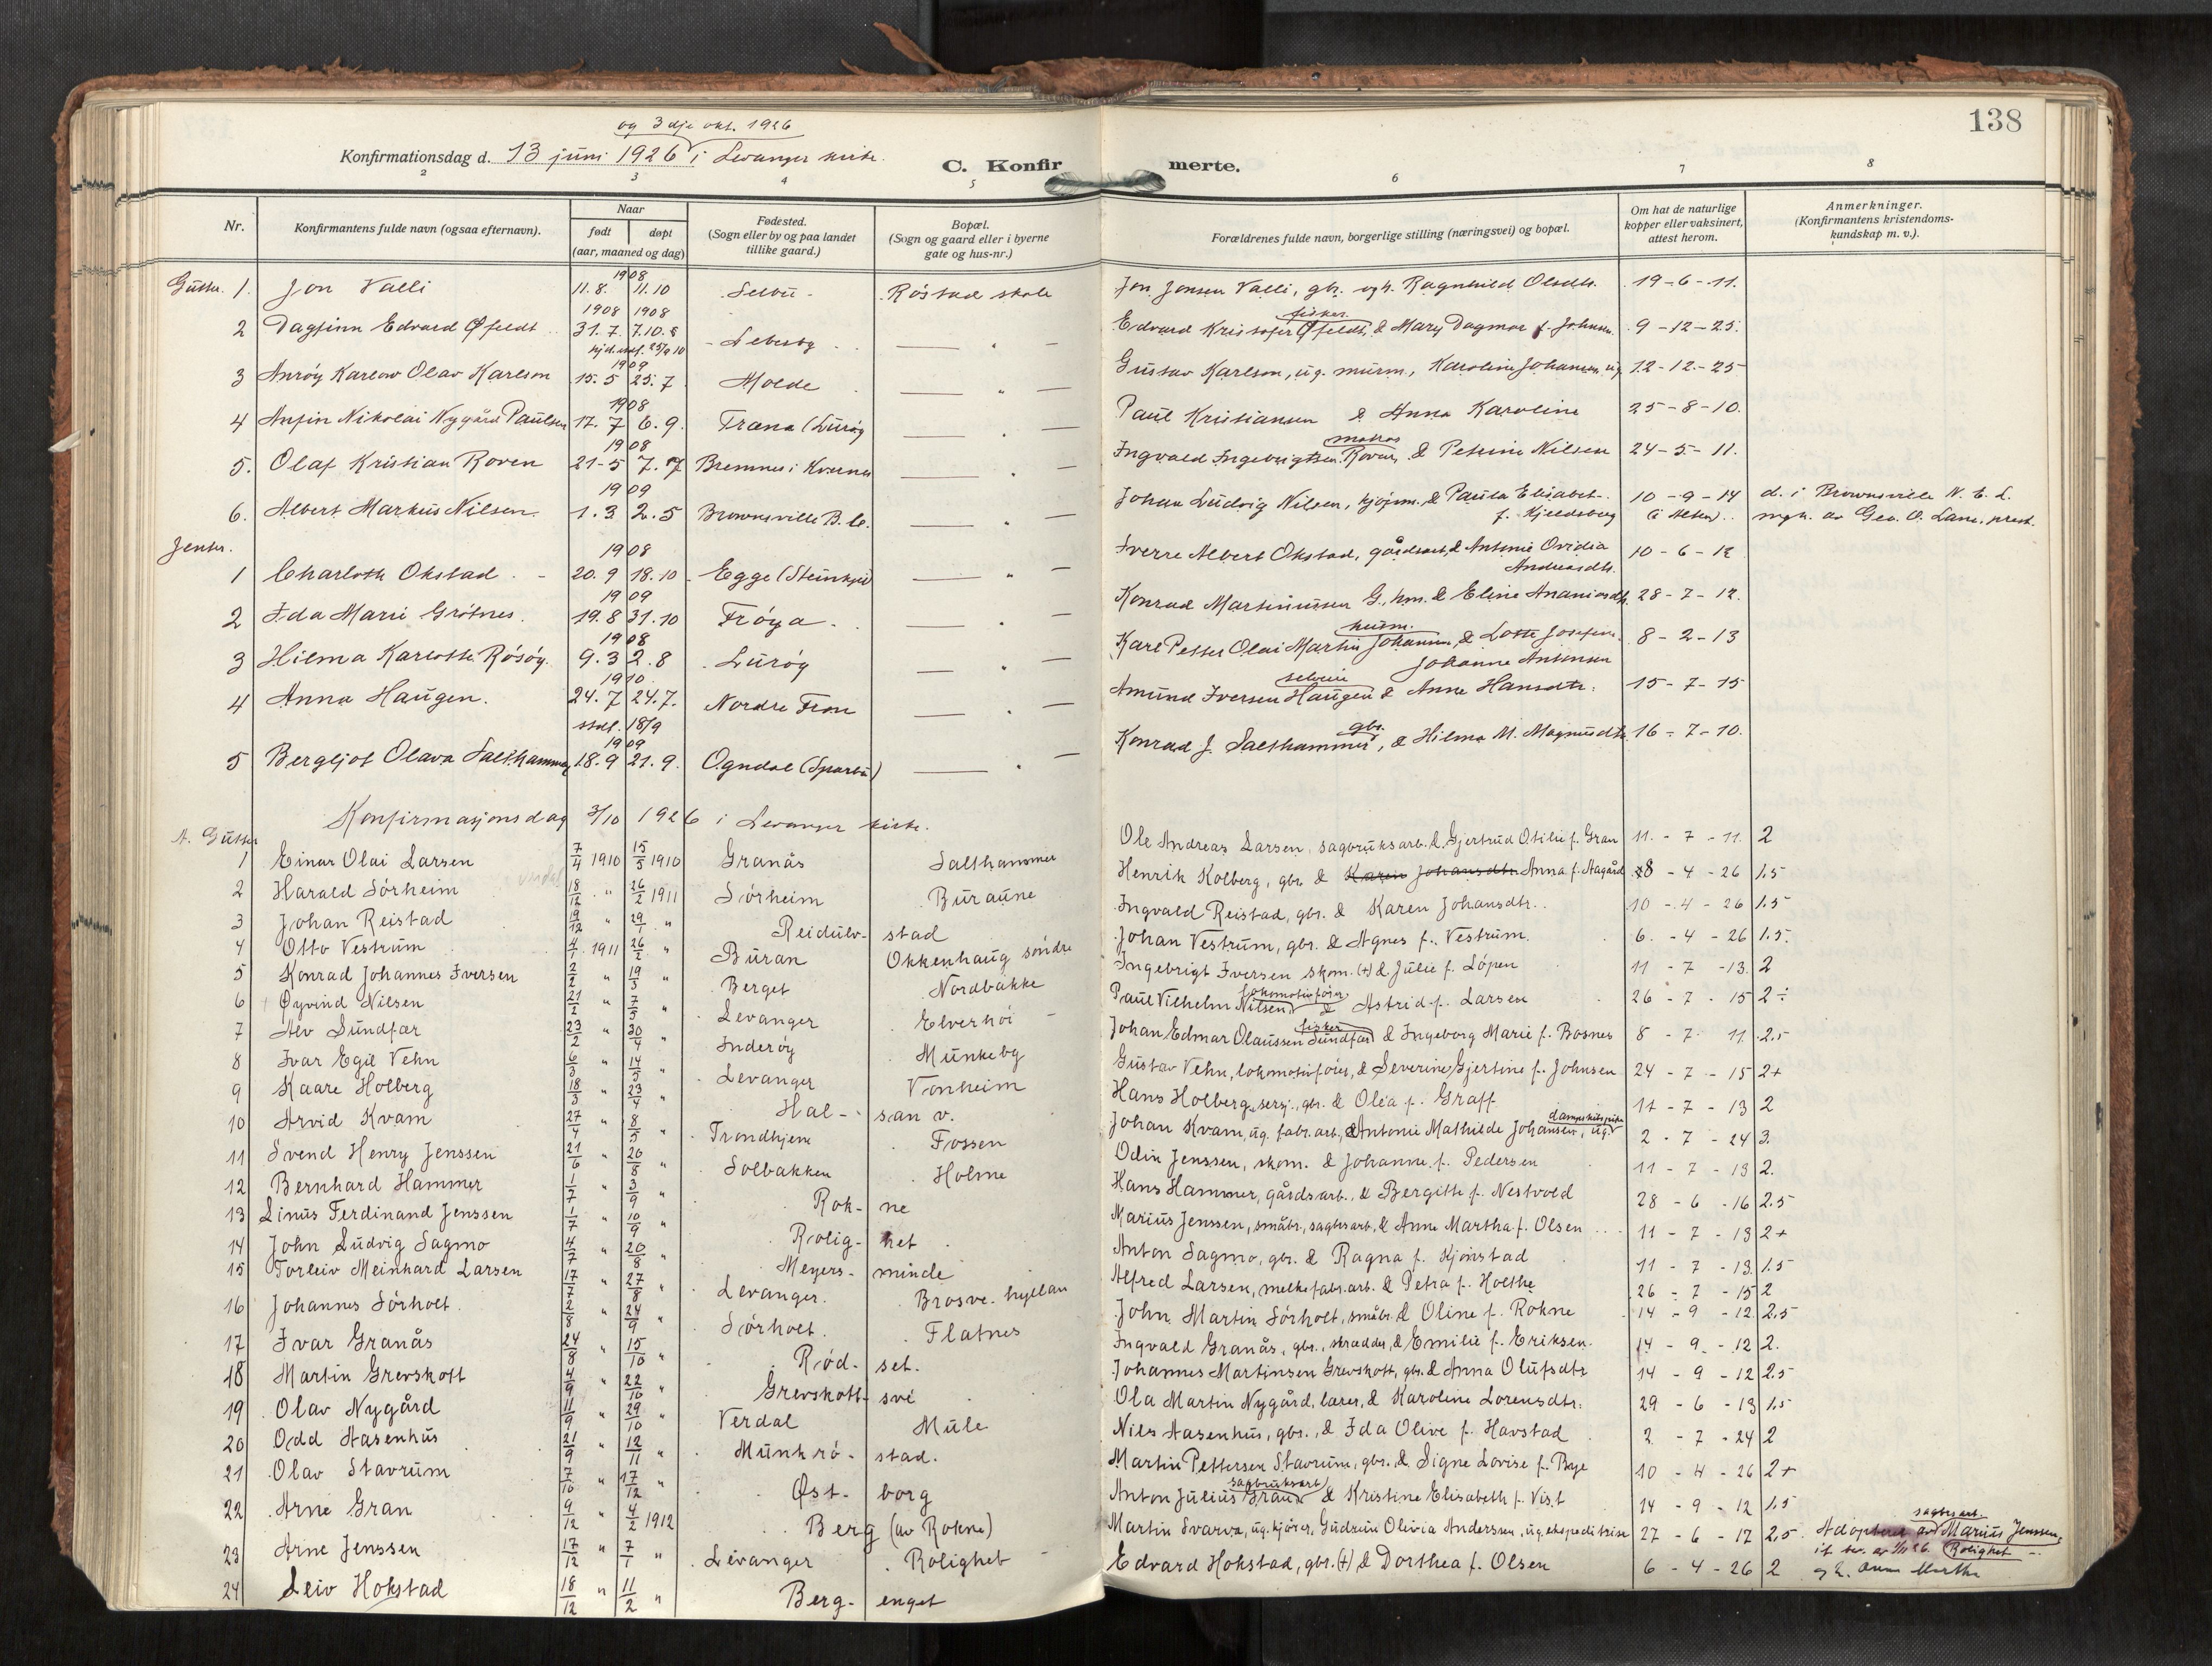 138
og 3dje okt. 1926
Konfirmationsdag d. 13 juni 1926 i Levanger kirke.
C. Konfirmerte.
2 3 4 5 6 7 8
Nr. | Konfirmantens fulde navn (ogsaa efternavn). | Naar født døpt (aar, maaned og dag) | Fødested. (Sogn eller by og paa landet tillike gaard.) | Bopæl. (Sogn og gaard eller i byerne gate og hus-nr.) | Forældrenes fulde navn, borgerlige stilling (næringsvei) og bopæl. | Om hat de naturlige kopper eller vaksinert, attest herom. | Anmerkninger. (Konfirmantens kristendomskundskap m. v.).
Gutter. 1. Jon Valli 1908 11.8. 11.10 Selbu Røstad skole Jon Jonsen Valli, gbr. og h. Ragnhild Olsdtr. 19-6-11.
2 Dagfinn Edvard Øfeldt 1908 1908 31.7. 7.10.8 hjd. stadf. 25/9 10 Lebesby — " — Edvard Kristofer Øfeldt, fisker & Mary Dagmar f. Johnsen 9-12-25.
3 Karlow Olav Karlson 1909 15.5 25.7 Molde — " — Gustav Karlson, ug. murm., Karoline Johansen, ug. 12-12-25
4 Anfin Nikolai Nygård Paulsen 1908 17.7 6.9. Træna (Lurøy — " — Paul Kristiansen & Anna Karoline 25-8-10.
5. Olaf Kristian Roven 1908 21-5 7.7 Bremnes i Kvernes — " — Ingvald Ingebrigtsen Roven, matros & Petrine Nilsen 24-5-11.
6. Albert Markus Nilsen 1909 1.3 2.5 Brownsville B. C. — " — Johan Ludvig Nilsen, kjøpm. & Paula Elisabet f. Kjeldsberg 10-9-14 (i Alten). d. i Brownsville N. E. L. mgh. av Geo. O. Lane, prest.
Jenter.
1 Charloth Okstad 1908 20.9 18.10 Egge (Steinkjer) — " — Sverre Albert Okstad, gårdsarb, & Antonie Ovidia Andreasdtr. 10-6-12
2 Ida Marie Grötnes. 1909 19.8 31.10 Fröya — " — Konrad Martinussen G., hm. & Eline Ananiasdtr. 28-7-12.
3 Hilma Karlotte Rósóy. 1908 9.3 2.8 Luróy — " — Karl Petter Olai Martin Johansen, husm. & Lotte Josefine Johanne Antonsen 8-2-13
4 Anna Haugen. 1910 24.7 24.7. stdf. 18/9 Nordre Fron — " — Amund Iversen Haugen selveier & Anne Hansdtr. 15-7-15
5 Bergljot Olava Salthammer 1909 18.9 21.9. Ogndal (Sparbu) — " — Konrad J. Salthammer, gbr. & Hilma M. Magnusdtr. 16-7-10.
Konfirmasjonsdag 3/10 1926 i Levanger kirke.
A. Gutter
1 Einar Olai Larsen 7/4 1910 15/5 1910 Granås Salthammer Ole Andreas Larsen, sagbruksarb. & Gjertrud Otilie f. Gran 11.-7-11. 2
2 Harald Sórheim 18/12 " 26/2 1911 Sórheim Buraune Henrik Kolberg, gbr. & Karen Johansdtr. Anna f. Aagård 8-4-26 1.5
3 Johan Reistad 19/12 " 29/1 " Reidulv-stad Ingvald Reistad, gbr. & Karen Johansdtr. 10-4-26 1.5
4 Otto Vestrum 4/1 1911 26/2 " Buran Okkenhaug söndre Johan Vestrum, gbr. & Agnes f. Vestrum. 6.-4-26 1.5.
5 Konrad Johannes Iversen 2/2 " 19/3 " Berget Nordbakke Ingebrigt Iversen skom. (+) & Julie f. Löpen 11-7-13. 2
6 Øyvind Nilsen 21/2 " 7/5 " Levanger Elverhöi Paul Vilhelm Nilsen, lokomotivfører & Astrid f. Larsen 26-7-15 2÷
7 Alv Sundfær 23/2 " 30/4 " Inderöy Munkeby Johan Edmar Olaussen Sundfær fisker & Ingeborg Marie f. Bosnes 8-7-11 2.5
8 Ivar Egil Vehn 6/3 " 14/5 " Levanger Vonheim Gustav Vehn, lokomotivfører, & Severine Gjertine f. Johnsen 24-7-15 2+
9 Kaare Holberg 18/3 " 23/4 " Hal-san v. Hans Holberg, sersj., gbr. & Olea f. Graff 11-7-13 2
10 Arvid Kvam 27/4 " 8/5 " Trondhjem Fossen Johan Kvam, ug. fabr. arb., & Antonie Mathilde Johansen, ug. 2-7-24 3.
11 Svend Henry Jenssen 21/6 " 20/8 " Solbakken Holme Odin Jenssen, skom. & Johanne f. Pedersen 11-7-13 2.
12 Bernhard Hammer 1/7 " 3/9 " Rok-ne Hans Hammer, gårdsarb., & Bergitte f. Nestvold 28-6-16 2.5
13 Linus Ferdinand Jenssen 1/7 " 10/9 " Rolig-het Marius Jenssen, småbr., sagbr.arb, & Anne Martha f. Olsen 11-7-13 2+
14 John Ludvig Sagmo 4/7 " 20/8 " Meyers-minde Anton Sagmo, gbr. & Ragna f. Kjönstad 11-7-13. 1.5
15 Torleiv Meinhard Larsen 17/7 " 27/8 " Levanger. Brosve. hyllan Alfred Larsen, melkefabr.arb. & Petra f. Holthe 26-7-15 2
16 Johannes Sórholt. 2/8 " 24/9 " Sórholt. Flatnes John Martin Sórholt, småbr. & Oline f. Rokne 14-9-12 2.5
17 Ivar Granås 24/8 " 15/10 " Röd-set. Ingvald Granås, gbr., skrædder, & Emilie f. Eriksen. 14-9-12 2.
18 Martin Grevskott 4/9 " 22/10 " Grevskott-sve Johannes Martinsen Grevskott, gbr. & Anna Olufsdtr 14-9-12 2.5
19 Olav Nygård 11/9 " 29/10 " Verdal Mule Ola Martin Nygård, lærer, & Karoline Lorensdtr. 29-6-13 1.5
20 Odd Aasenhus 21/9 " 12/11 " Munkrö-stad. Nils Aasenhus, gbr., & Ida Olive f. Havstad 2-7-24 2
21 Olav Stavrum 7/10 " 17/12 " Øst-borg Martin Pettersen Stavrum, gbr. & Signe Lovise f. Bye 10-4-26 2+
22 Arne Gran 9/12 " 4/2 1912 Berg (av Rokne) Anton Julius Gran sagbruksarb & Kristine Elisabeth f. Vist 14-9-12 1.5
23 Arne Jenssen 17/12 " 7/1 " Levanger Rolighet Martin Svarva, ug. kjörer, Gudrun Olivia Andersen, ug. ekspeditrise 27-6-17 2.5 Adoptert av sagbr.arb. Marius Jenssen, Rolighet og h. Anne Martha
24 Leiv Hokstad 18/12 " 11/2 " Berg-enget Edvard Hokstad, gbr. (+) & Dorthea f. Olsen 6-4-26 2